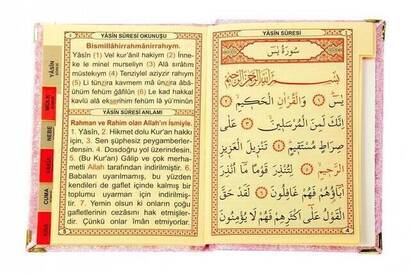 YÂSÎN SÛRESİ OKUNUŞU
Bismillâhirrahmânirrahıym.
Yâsîn (1) Vel kur'ânil hakıym (2) İnne-
ke le minel murseliyn (3) Alâ sırâtım
müstekıym (4) Tenziylel aziyzir rahıym
(5) Li tünzira kavmem mâ ünzira âbâ-
ühüm fehüm ğâfilûn (6) Le kad hakkal
kavlü alâ ekserihim fehüm lâ yü'minûn
YÂSÎN SÛRESİ ANLAMI
Rahman ve Rahim olan Allah'ın ismiyle.
1. Yâsîn, 2. Hikmet dolu Kur'an hakkı
için, 3. Sen şüphesiz peygamberler-
densin. 4. Dosdoğru yol üzerindesin.
5. (Bu Kur'an) Gâlip ve çok merha-
metli Allah tarafından indirilmiştir. 6.
Babaları uyarılmamış, bu yüzden
kendileri de gaflet içinde kalmış bir
toplumu uyarman için indirilmiş-
tir. 7. Yemin olsun ki onların çoğu
gafletlerinin cezasını hak etmişler-
dir. Çünkü onlar iman etmiyorlar.
YÂSÎN
MÜLK
NEBE
CUMA
YÂSÎN SÛRESİ
سُورَةُ يٰسٓ
بِسْمِ اللّٰهِ الرَّحْمٰنِ الرَّحِيمِ
يٰسٓ ﴿١﴾ وَالْقُرْاٰنِ الْحَكِيمِ ﴿٢﴾
اِنَّكَ لَمِنَ الْمُرْسَلِينَ ﴿٣﴾ عَلٰى
صِرَاطٍ مُسْتَقِيمٍ ﴿٤﴾ تَنْزِيلَ الْعَزِيزِ
الرَّحِيمِ ﴿٥﴾ لِتُنْذِرَ قَوْمًا مَٓا اُنْذِرَ
اٰبَٓاؤُهُمْ فَهُمْ غَافِلُونَ ﴿٦﴾ لَقَدْ حَقَّ
الْقَوْلُ عَلٰٓى اَكْثَرِهِمْ فَهُمْ لَا يُؤْمِنُونَ
4